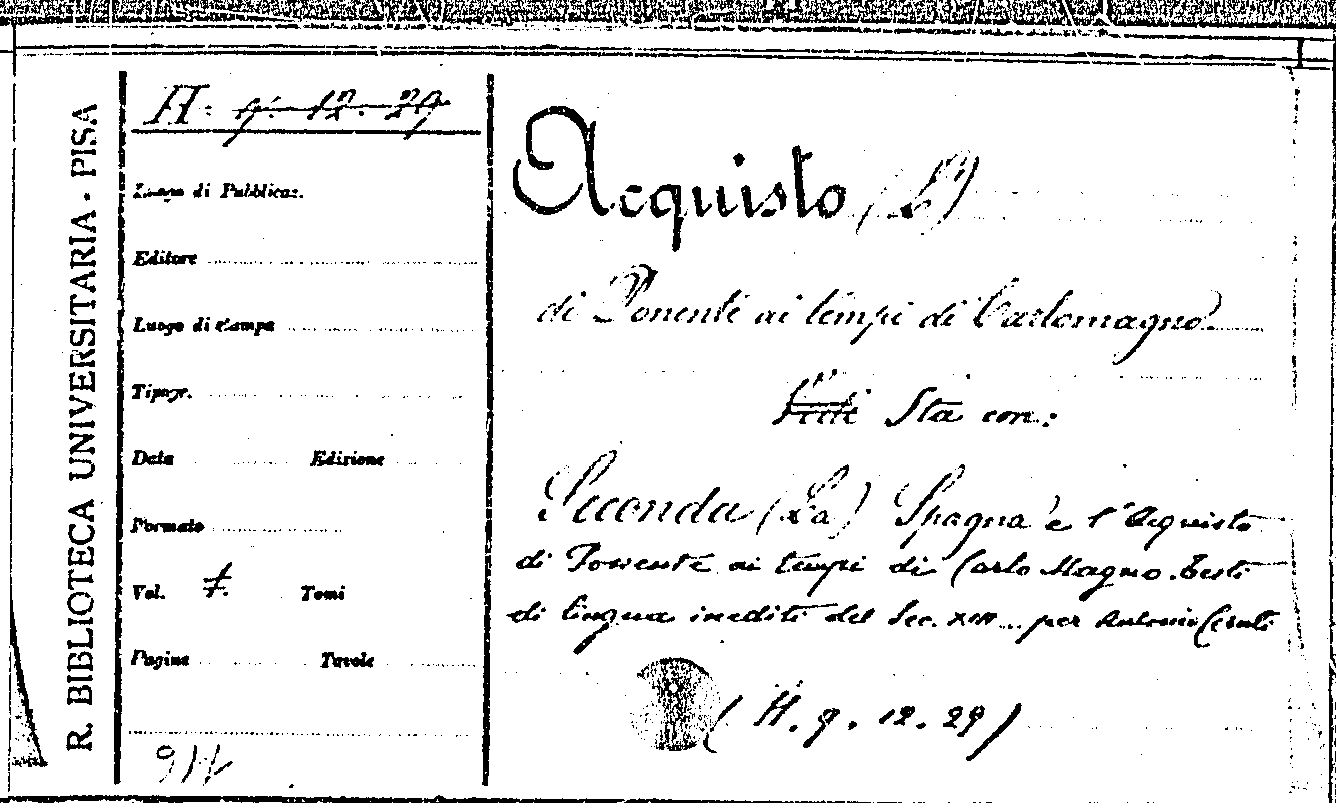 R. BIBLIOTECA UNIVERSITARIA - PISA
H. 9. 12. 29
Luogo di Pubblicaz.
Editore
Luogo di stampa
Tipogr.
Data Edizione
Formato
Vol. 1. Tomi
Pagine Tavole
Acquisto (L')
di Ponente ai tempi di Carlomagno.
Vedi Sta con:
Seconda (La) Spagna e l'Acquisto
di Ponente ai tempi di Carlo Magno. Testi
di lingua inediti del Sec. XIII... per Antonio Ceruti
(H. 9. 12. 29)